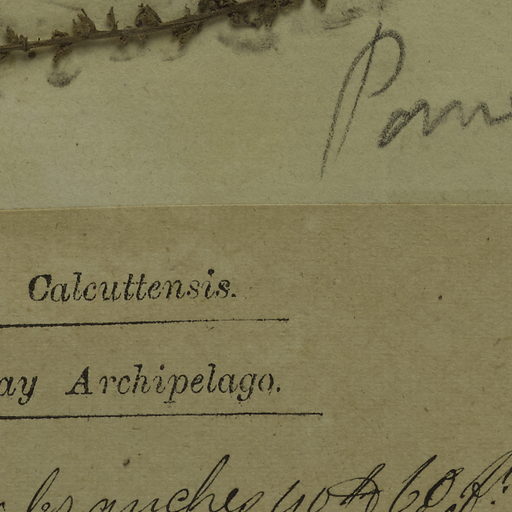 Calcuttensis.
ay Archipelago.
branches 40 to 60 ft: